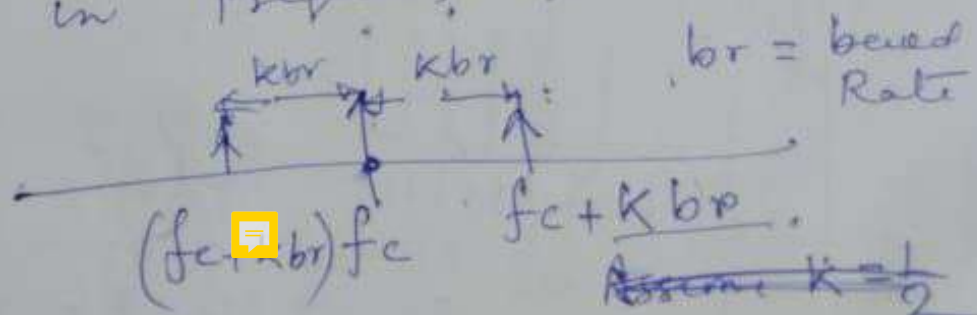 in
kbr kbr br = baud
Rate
(fc+kbr) fc fc + K br.
Assume K = 1/2